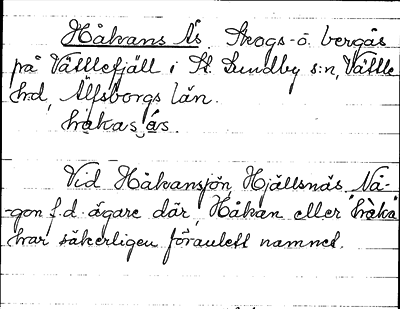 Håkans Ås. Skogs- o. bergås
på Vättlefjäll i St. Lundby s:n, Vättle
h:d, Älfsborgs län.
håkas ås.
Vid Håkansjön, Hjällsnäs. Nå-
-gon f.d. ägare där, Håkan eller håka
har säkerligen föranlett namnet.